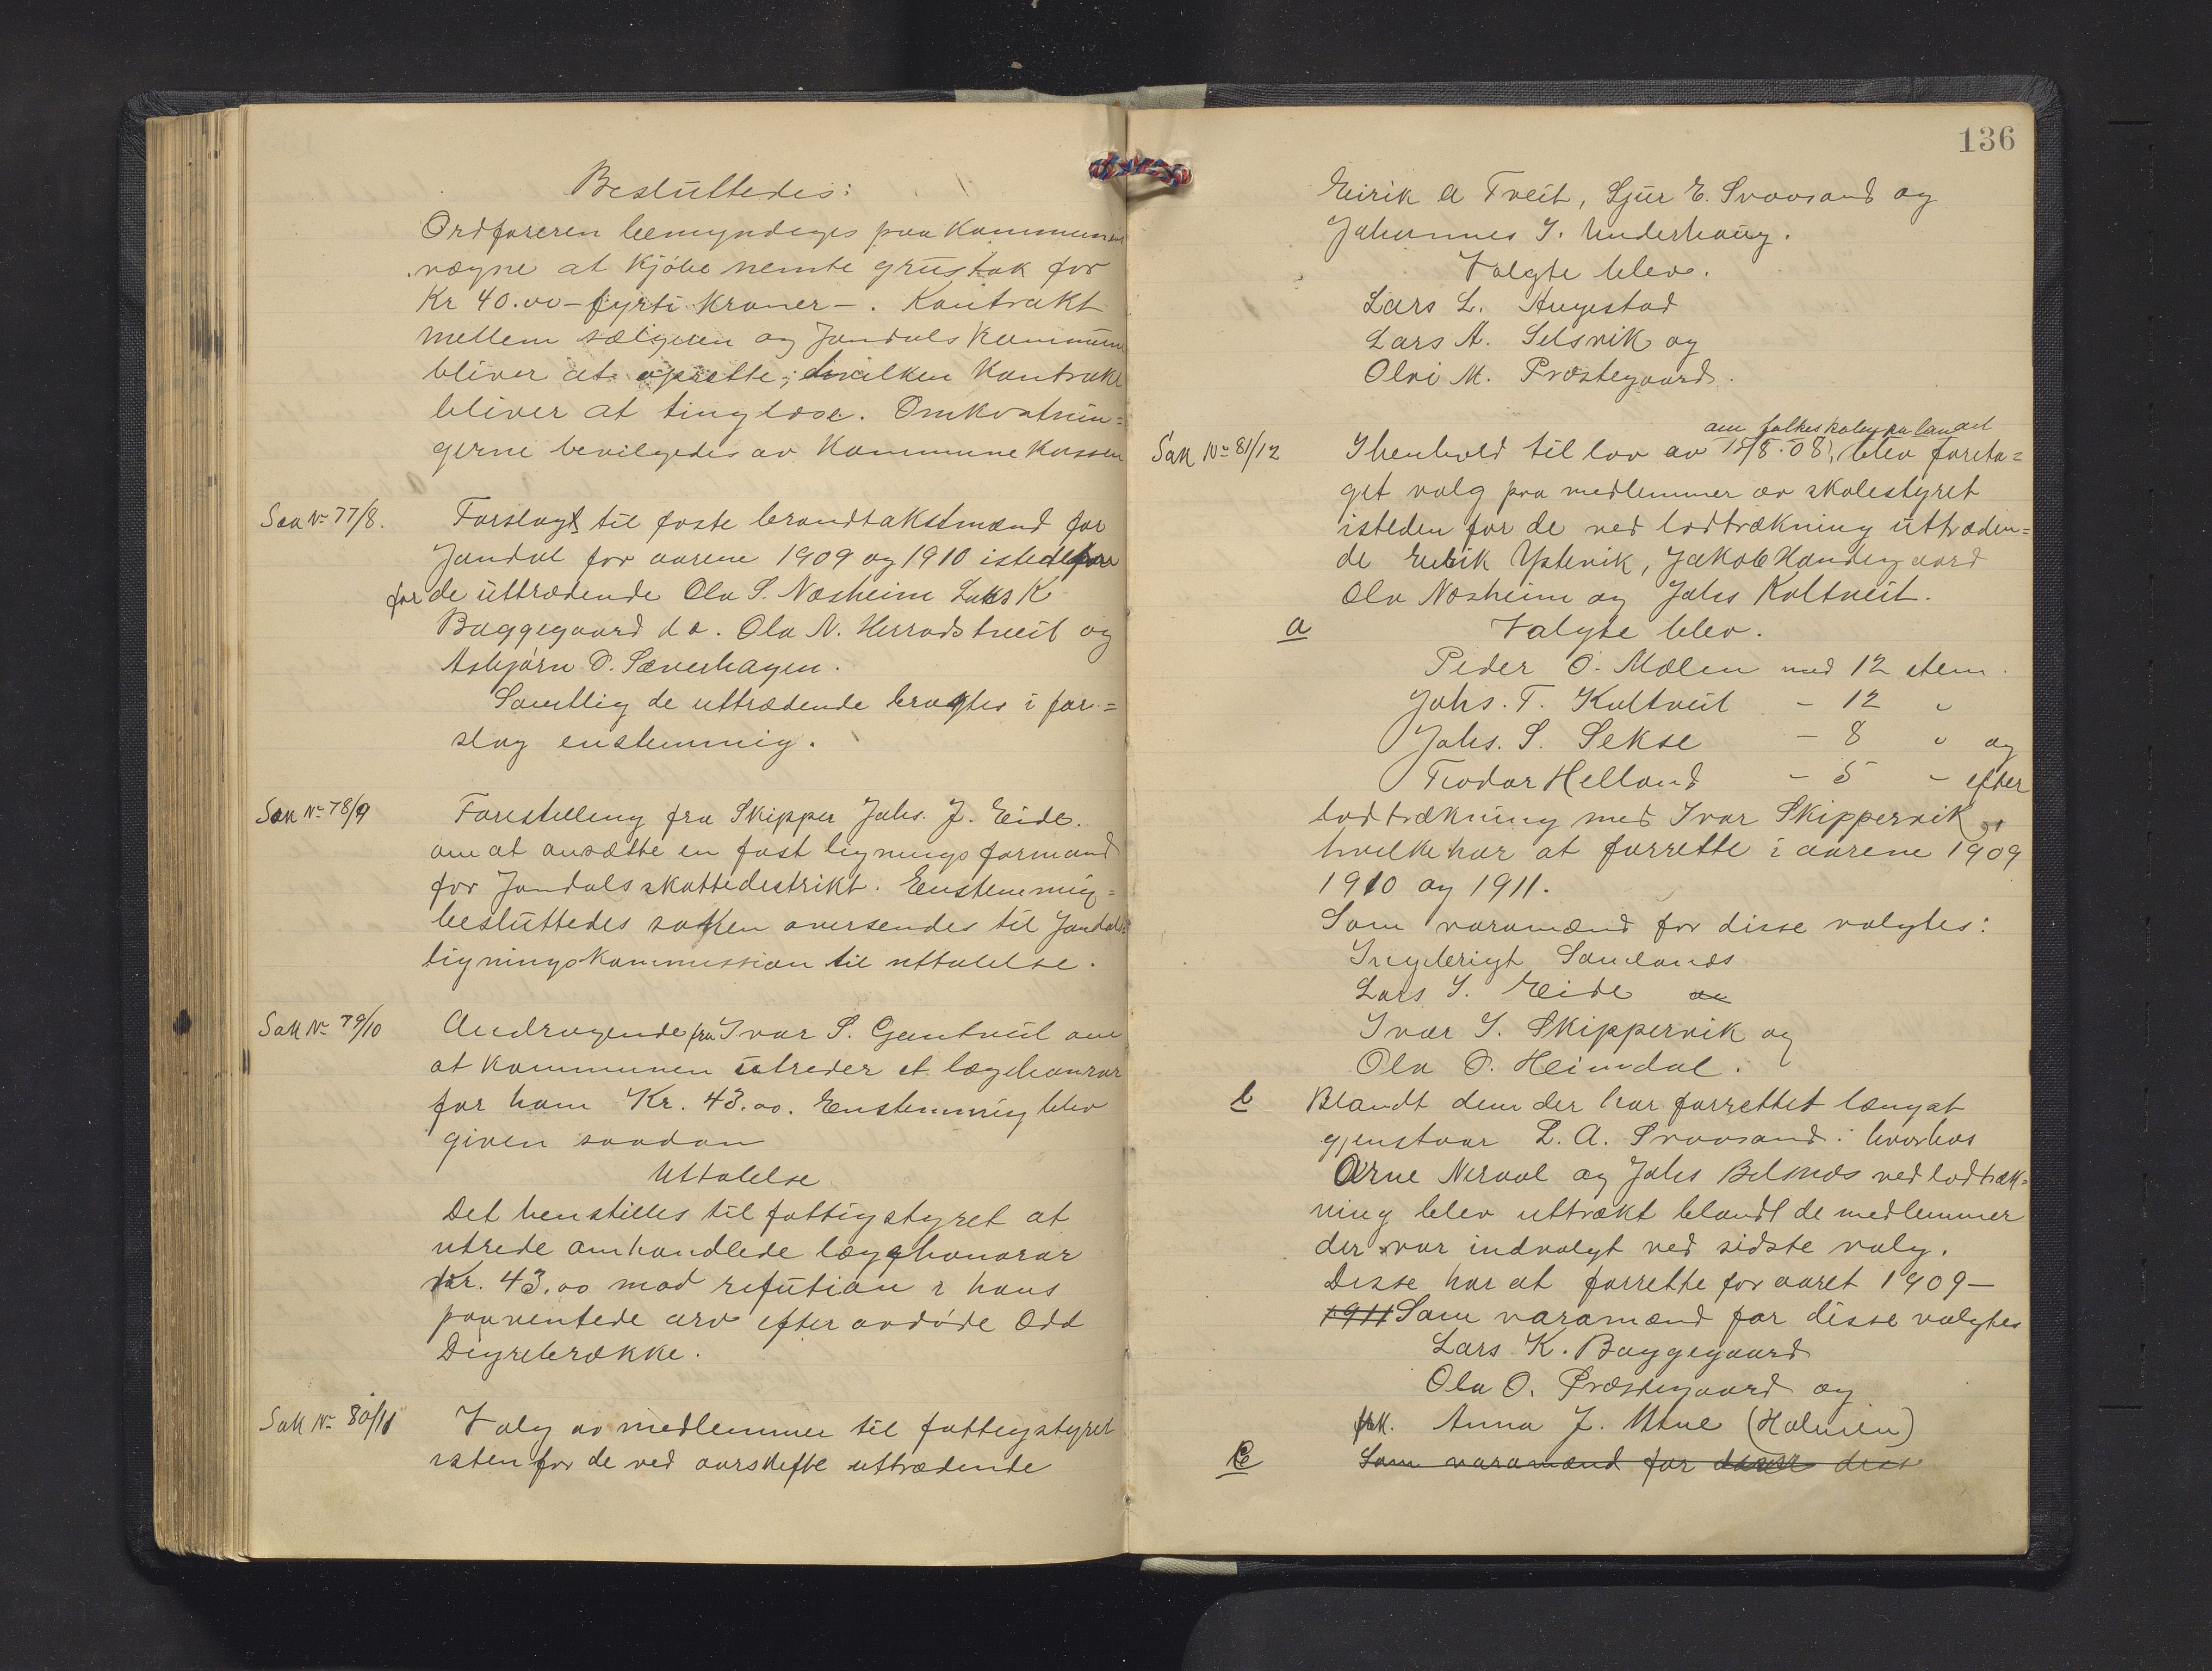 Besluttedes:
Ordføreren bemyndiges paa kommunens
vægne at kjøbe nemte grustak for
Kr 40.00 – fyrti kroner –. Kontrakt
mellem sælgeren og Jondals kommune
bliver at oprette; hvilken kontrakt
bliver at tinglæse. Omkostnin=
gerne bevilgedes av Kommunekassen
Saa No 77/8.
Forslag til faste brandtakstmænd for
Jondal for aarene 1909 og 1910 istedet
for de uttrædende Ola S. Næsheim Lars K
Baggegaard do. Ola N. Herradstveit og
Asbjørn O. Sæverhagen.
Samtlig de uttrædende bragtes i for=
slag enstemmig.
Sak No 78/9
Forestilling fra Skipper Johs. J. Eide.
om at ansætte en fast ligningsformand
for Jondals skattedestrikt. Enstemmig=
besluttedes saken oversendes til Jondals
ligningskommission til uttalelse.
Sak No 79/10
Andragende fra Ivar S. Gantveit om
at kommunen utreder et lægehonrar
for ham Kr. 43.00. Enstemmig blev
given saadan
Uttalelse
Det henstilles til fattigstyret at
utrede omhandlede lægehonorar
Kr. 43.00 mod refution i hans
paaventede arv efter avdøde Odd
Digrebrække.
Sak No 80/11
Valg av medlemmer til fattigstyret
isten for de ved aarskefte uttrædende
136
Eirik A Tveit, Sjur E. Svaasand og
Johannes J. Underhaug.
Valgte blev.
Lars L. Augestad
Lars A. Selsvik og
Olai M. Præstegaard.
om folkeskolen paa landet
Sak No 81/12
I henhold til lov av 15/8.08, blev foreta=
get valg paa medlemmer av skolestyret
isteden for de ved lodtrækning uttræden=
de Eirik Ystevik, Jakob Handegaard
Ola Næsheim og Johs Koltveit.
a
Valgte blev.
Peder O. Mælen med 12 stem.
Johs. T. Koltveit – 12 "
Johs. S. Sekse – 8 " og
Teodor Helland – 5 – efter
lodtrækning med Ivar Skippervik
hvilke har at forrette i aarene 1909
1910 og 1911.
Som varamænd for disse valgtes:
Ingebrigt Samlands
Lars S. Eide og
Ivar I. Skippervik og
Ola O. Heimdal.
b
Blandt dem der har forrettet længst
gjenstaar L. A. Svaasand: hvorhos
Arne Neraal og Johs Belsnæs ved lodtræk=
ning blev uttrækt blandt de medlemmer
der var indvalgt ved sidste valg.
Disse har at forrette for aaret 1909 –
1911 Som varamænd for disse valgtes
Lars K. Baggegaard
Ola O. Præstegaard og
frk. Anna J. Utne (Holmen)
c
Som varamænd for disse